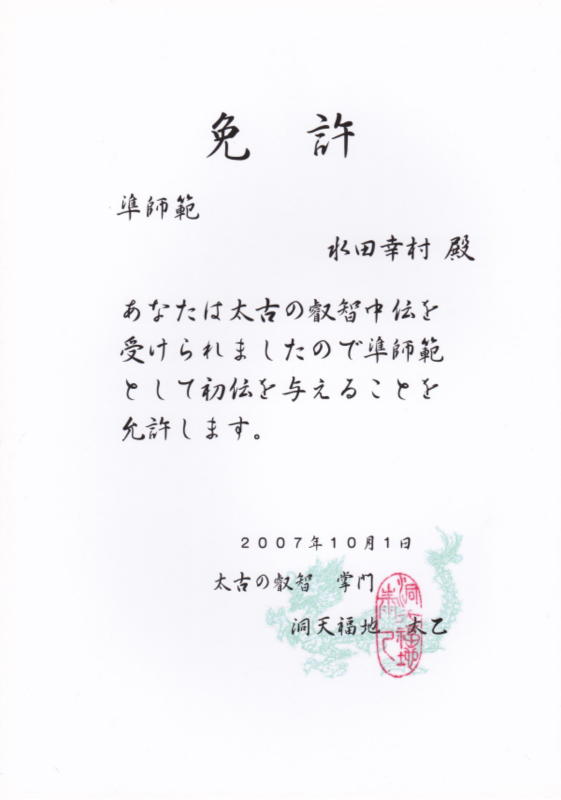 免許
準師範
水田幸村 殿
あなたは太古の叡智中伝を
受けられましたので準師範
として初伝を与えることを
允許します。
2007年10月1日
太古の叡智 掌門
洞天福地 太乙